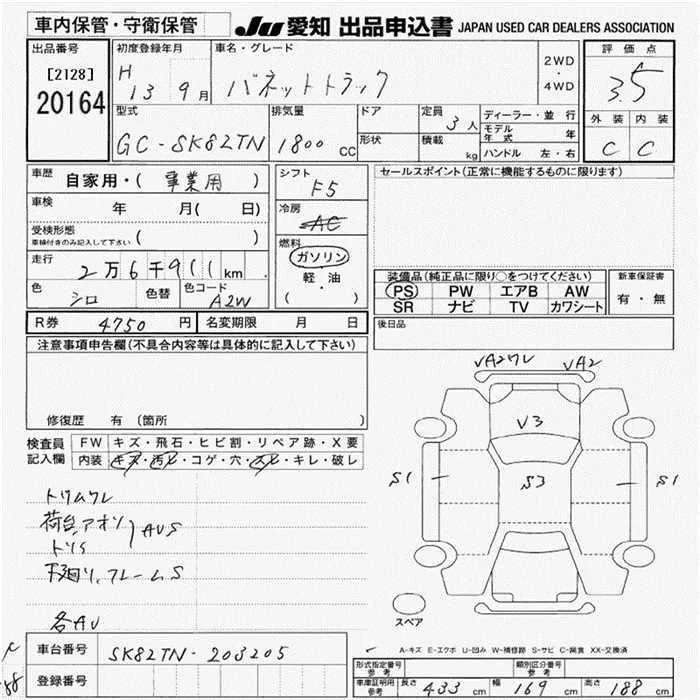 車内保管・守衛保管
JU 愛知 出品申込書 JAPAN USED CAR DEALERS ASSOCIATION
出品番号
[2128]
20164
初度登録年月
H 13 9月
車名・グレード
バネットトラック
2WD
・
4WD
評価点
3.5
外装 内装
C C
型式
GC-SK82TN
排気量
1800 cc
ドア
形状
定員
3人
積載
kg
ディーラー・並行
モデル年式 年
ハンドル 左・右
車歴
自家用・( 事業用 )
車検
年 月( 日)
受検形態
車検付きのみ記入して下さい ( )
走行
2万6千911km
色
シロ
色替
色コード
A2W
シフト
F5
冷房
AC
燃料
ガソリン
軽・油
( )
R券 4750 円 名変期限 月 日
セールスポイント(正常に機能するものに限ります)
装備品(純正品に限り○をつけてください)
PS PW エアB AW
SR ナビ TV カワシート
新車保証書
有・無
後日品
注意事項申告欄(不具合内容等は具体的に記入して下さい)
修復歴 有 (箇所 )
検査員記入欄
FW キズ・飛石・ヒビ割・リペア跡・X要
内装 キズ・汚レ・コゲ・穴・スレ・キレ・破レ
トリムワレ
荷台アオリ
トリイ
AUS
下廻り、フレームS
各AU
VA2ワレ VA2
V3
S1 S3 S1
スペア
A-キズ E-エクボ U-凹み W-補修跡 S-サビ C-腐食 XX-交換済
車台番号 SK82TN-203205
登録番号
形式指定番号 参考
類別区分番号 参考
車庫証明用 参考 長さ 433 cm 幅 169 cm 高さ 188 cm